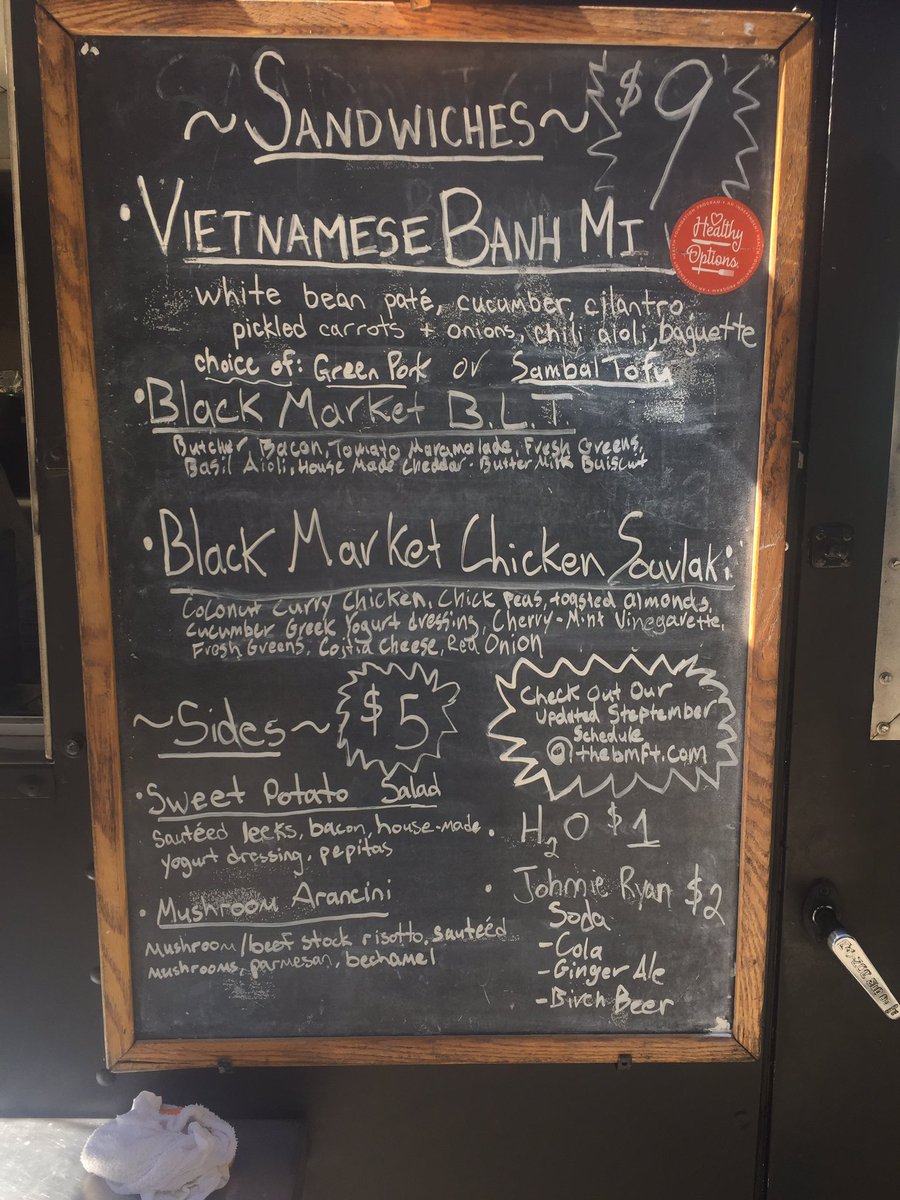 ~SANDWICHES~ $9
• VIETNAMESE BANH MI
Healthy
Options.
white bean paté, cucumber, cilantro
pickled carrots + onions, chili aioli, baguette
choice of: Green Pork or Sambal Tofu
• Black Market B.L.T.
Butcher Bacon, Tomato Maramalade, Fresh Greens,
Basil Aioli, House Made Cheddar - Butter Milk Buiscut
• Black Market Chicken Souvlaki
Coconut Curry Chicken, Chick peas, toasted almonds,
Cucumber Greek Yogurt dressing, Cherry-Mint Vinegarette,
Fresh Greens, Cojtia Cheese, Red Onion
~Sides~ $5
• Sweet Potato Salad
Sautéed leeks, bacon, house-made
yogurt dressing, pepitas
• Mushroom Arancini
mushroom/beef stock risotto, sautéed
mushrooms, parmesan, bechamel
Check Out Our
updated Steptember
Schedule
@thebmft.com
• H2O $1
• Johnnie Ryan $2
Soda
- Cola
- Ginger Ale
- Birch Beer